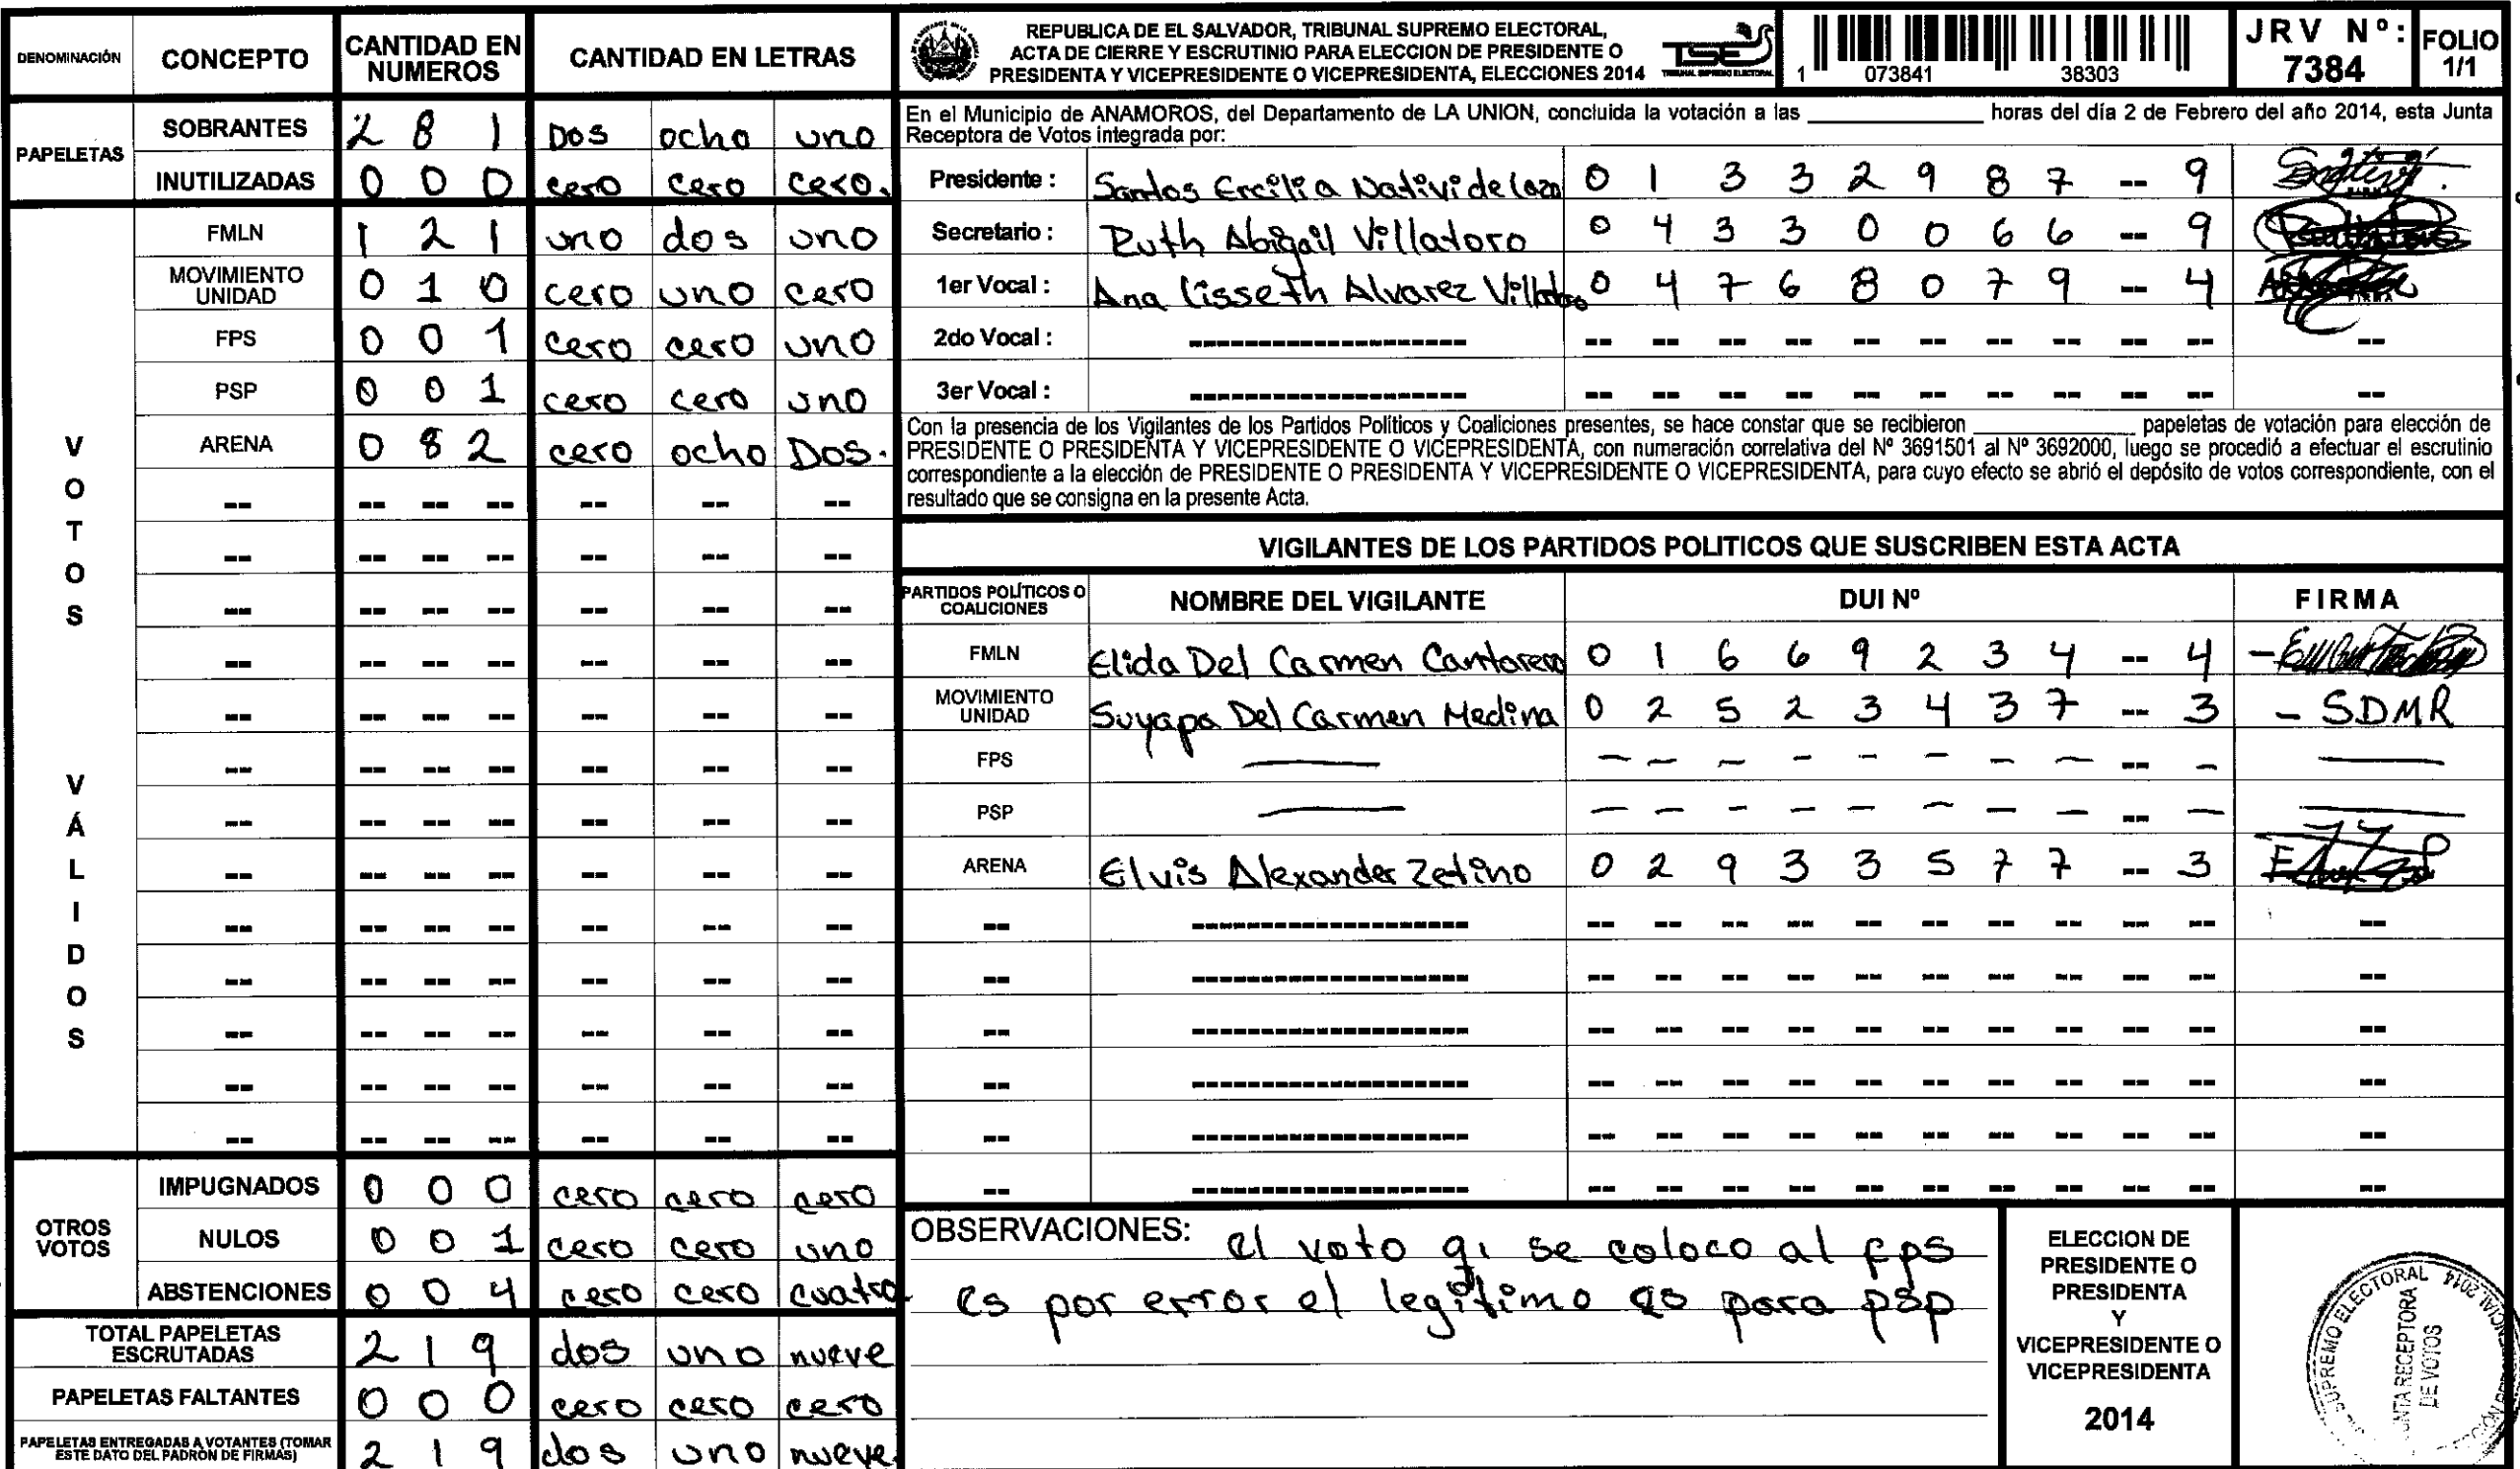 DENOMINACIÓN CONCEPTO CANTIDAD EN NUMEROS CANTIDAD EN LETRAS
PAPELETAS
SOBRANTES 2 8 1 Dos ocho uno
INUTILIZADAS 0 0 0 cero cero cero.
VOTOS VÁLIDOS
FMLN 1 2 1 uno dos uno
MOVIMIENTO UNIDAD 0 1 0 cero uno cero
FPS 0 0 1 cero cero uno
PSP 0 0 1 cero cero uno
ARENA 0 8 2 cero ocho Dos.
OTROS VOTOS
IMPUGNADOS 0 0 0 cero cero cero
NULOS 0 0 1 cero cero uno
ABSTENCIONES 0 0 4 cero cero cuatro
TOTAL PAPELETAS ESCRUTADAS 2 1 9 dos uno nueve
PAPELETAS FALTANTES 0 0 0 cero cero cero
PAPELETAS ENTREGADAS A VOTANTES (TOMAR ESTE DATO DEL PADRÓN DE FIRMAS) 2 1 9 dos uno nueve.
REPUBLICA DE EL SALVADOR, TRIBUNAL SUPREMO ELECTORAL,
ACTA DE CIERRE Y ESCRUTINIO PARA ELECCION DE PRESIDENTE O
PRESIDENTA Y VICEPRESIDENTE O VICEPRESIDENTA, ELECCIONES 2014
TSE
TRIBUNAL SUPREMO ELECTORAL
1 073841 38303
JRV Nº: 7384
FOLIO 1/1
En el Municipio de ANAMOROS, del Departamento de LA UNION, concluida la votación a las ____________ horas del día 2 de Febrero del año 2014, esta Junta
Receptora de Votos integrada por:
Presidente : Santos Ercilia Nativi de Lazo 0 1 3 3 2 9 8 7 -- 9
Secretario : Ruth Abigail Villatoro 0 4 3 3 0 0 6 6 -- 9
1er Vocal : Ana Lisseth Alvarez Villatoro 0 4 7 6 8 0 7 9 -- 4
2do Vocal : -------------------
3er Vocal : -------------------
Con la presencia de los Vigilantes de los Partidos Políticos y Coaliciones presentes, se hace constar que se recibieron ____________ papeletas de votación para elección de
PRESIDENTE O PRESIDENTA Y VICEPRESIDENTE O VICEPRESIDENTA, con numeración correlativa del Nº 3691501 al Nº 3692000, luego se procedió a efectuar el escrutinio
correspondiente a la elección de PRESIDENTE O PRESIDENTA Y VICEPRESIDENTE O VICEPRESIDENTA, para cuyo efecto se abrió el depósito de votos correspondiente, con el
resultado que se consigna en la presente Acta.
VIGILANTES DE LOS PARTIDOS POLITICOS QUE SUSCRIBEN ESTA ACTA
PARTIDOS POLÍTICOS O COALICIONES NOMBRE DEL VIGILANTE DUI Nº FIRMA
FMLN Elida Del Carmen Cantarero 0 1 6 6 9 2 3 4 -- 4
MOVIMIENTO UNIDAD Suyapa Del Carmen Medina 0 2 5 2 3 4 3 7 -- 3 - SDMR
FPS
PSP
ARENA Elvis Alexander Zetino 0 2 9 3 3 5 7 7 -- 3
OBSERVACIONES: el voto q' se coloco al fps
es por error el legitimo es para psp
ELECCION DE
PRESIDENTE O
PRESIDENTA
Y
VICEPRESIDENTE O
VICEPRESIDENTA
2014
SUPREMO ELECTORAL
JUNTA RECEPTORA
DE VOTOS